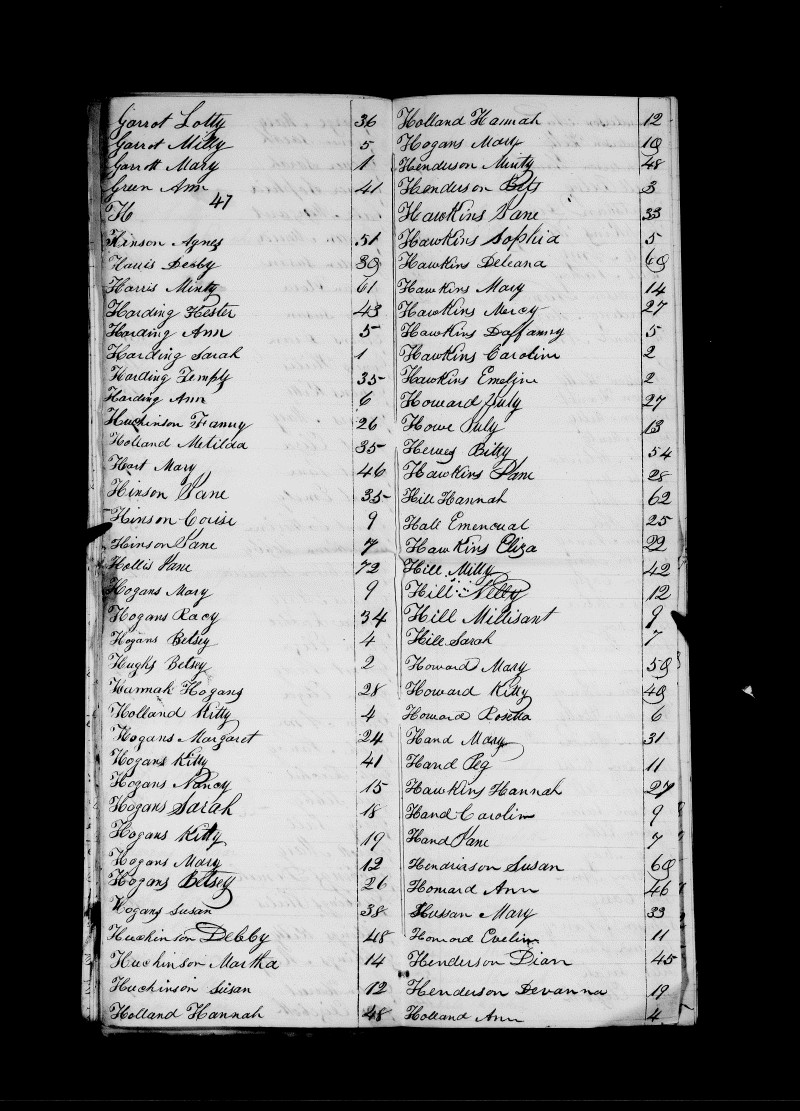 Garrot Lotty 36
Garrot Milly 5
Garrott Mary 1
Green Ann 41
47
H
Hinson Agnes 51
Harris Debby 30
Harris Minty 61
Harding Hester 43
Harding Ann 5
Harding Sarah 1
Harding Tempy 35
Harding Ann 6
Huchinson Fanny 26
Holland Metilda 35
Hart Mary 46
Hinson Jane 35
Hinson Louise 9
Hinson Jane 7
Hollis Jane 72
Hogans Mary 9
Hogans Racy 34
Hogans Betsey 4
Hughs Betsey 2
Hannah Hogans 28
Holland Kitty 4
Hogans Margaret 24
Hogans Kitty 41
Hogans Nancy 15
Hogans Sarah 18
Hogans Kitty 19
Hogans Mary 12
Hogans Betsey 26
Hogans Susan 38
Huchinson Debby 48
Huchinson Martha 14
Huchinson Susan 12
Holland Hannah 48
Holland Hannah 12
Hogans Mary 10
Henderson Minty 48
Henderson Bets 3
Hawkins Jane 33
Hawkins Sophia 5
Hawkins Deleana 60
Hawkins Mary 14
Hawkins Mercy 27
Hawkins Daffanny 5
Hawkins Caroline 2
Hawkins Emeline 2
Howard July 27
Howe July 13
Herves Bitty 54
Hawkins Jane 28
Hill Hannah 62
Hall Emenoual 25
Hawkins Eliza 22
Hill Milly 42
Hill Nelly 12
Hill Millisant 9
Hill Sarah 7
Howard Mary 50
Howard Kitty 40
Howard Rosetta 6
Hand Mary 31
Hand Peg 11
Hawkins Hannah 27
Hand Carolin 9
Hand Jane 7
Hendrixson Susan 60
Homard Ann 46
Hussan Mary 33
Homord Evelin 11
Henderson Dian 45
Henderson Devanna 19
Holland Ann 4